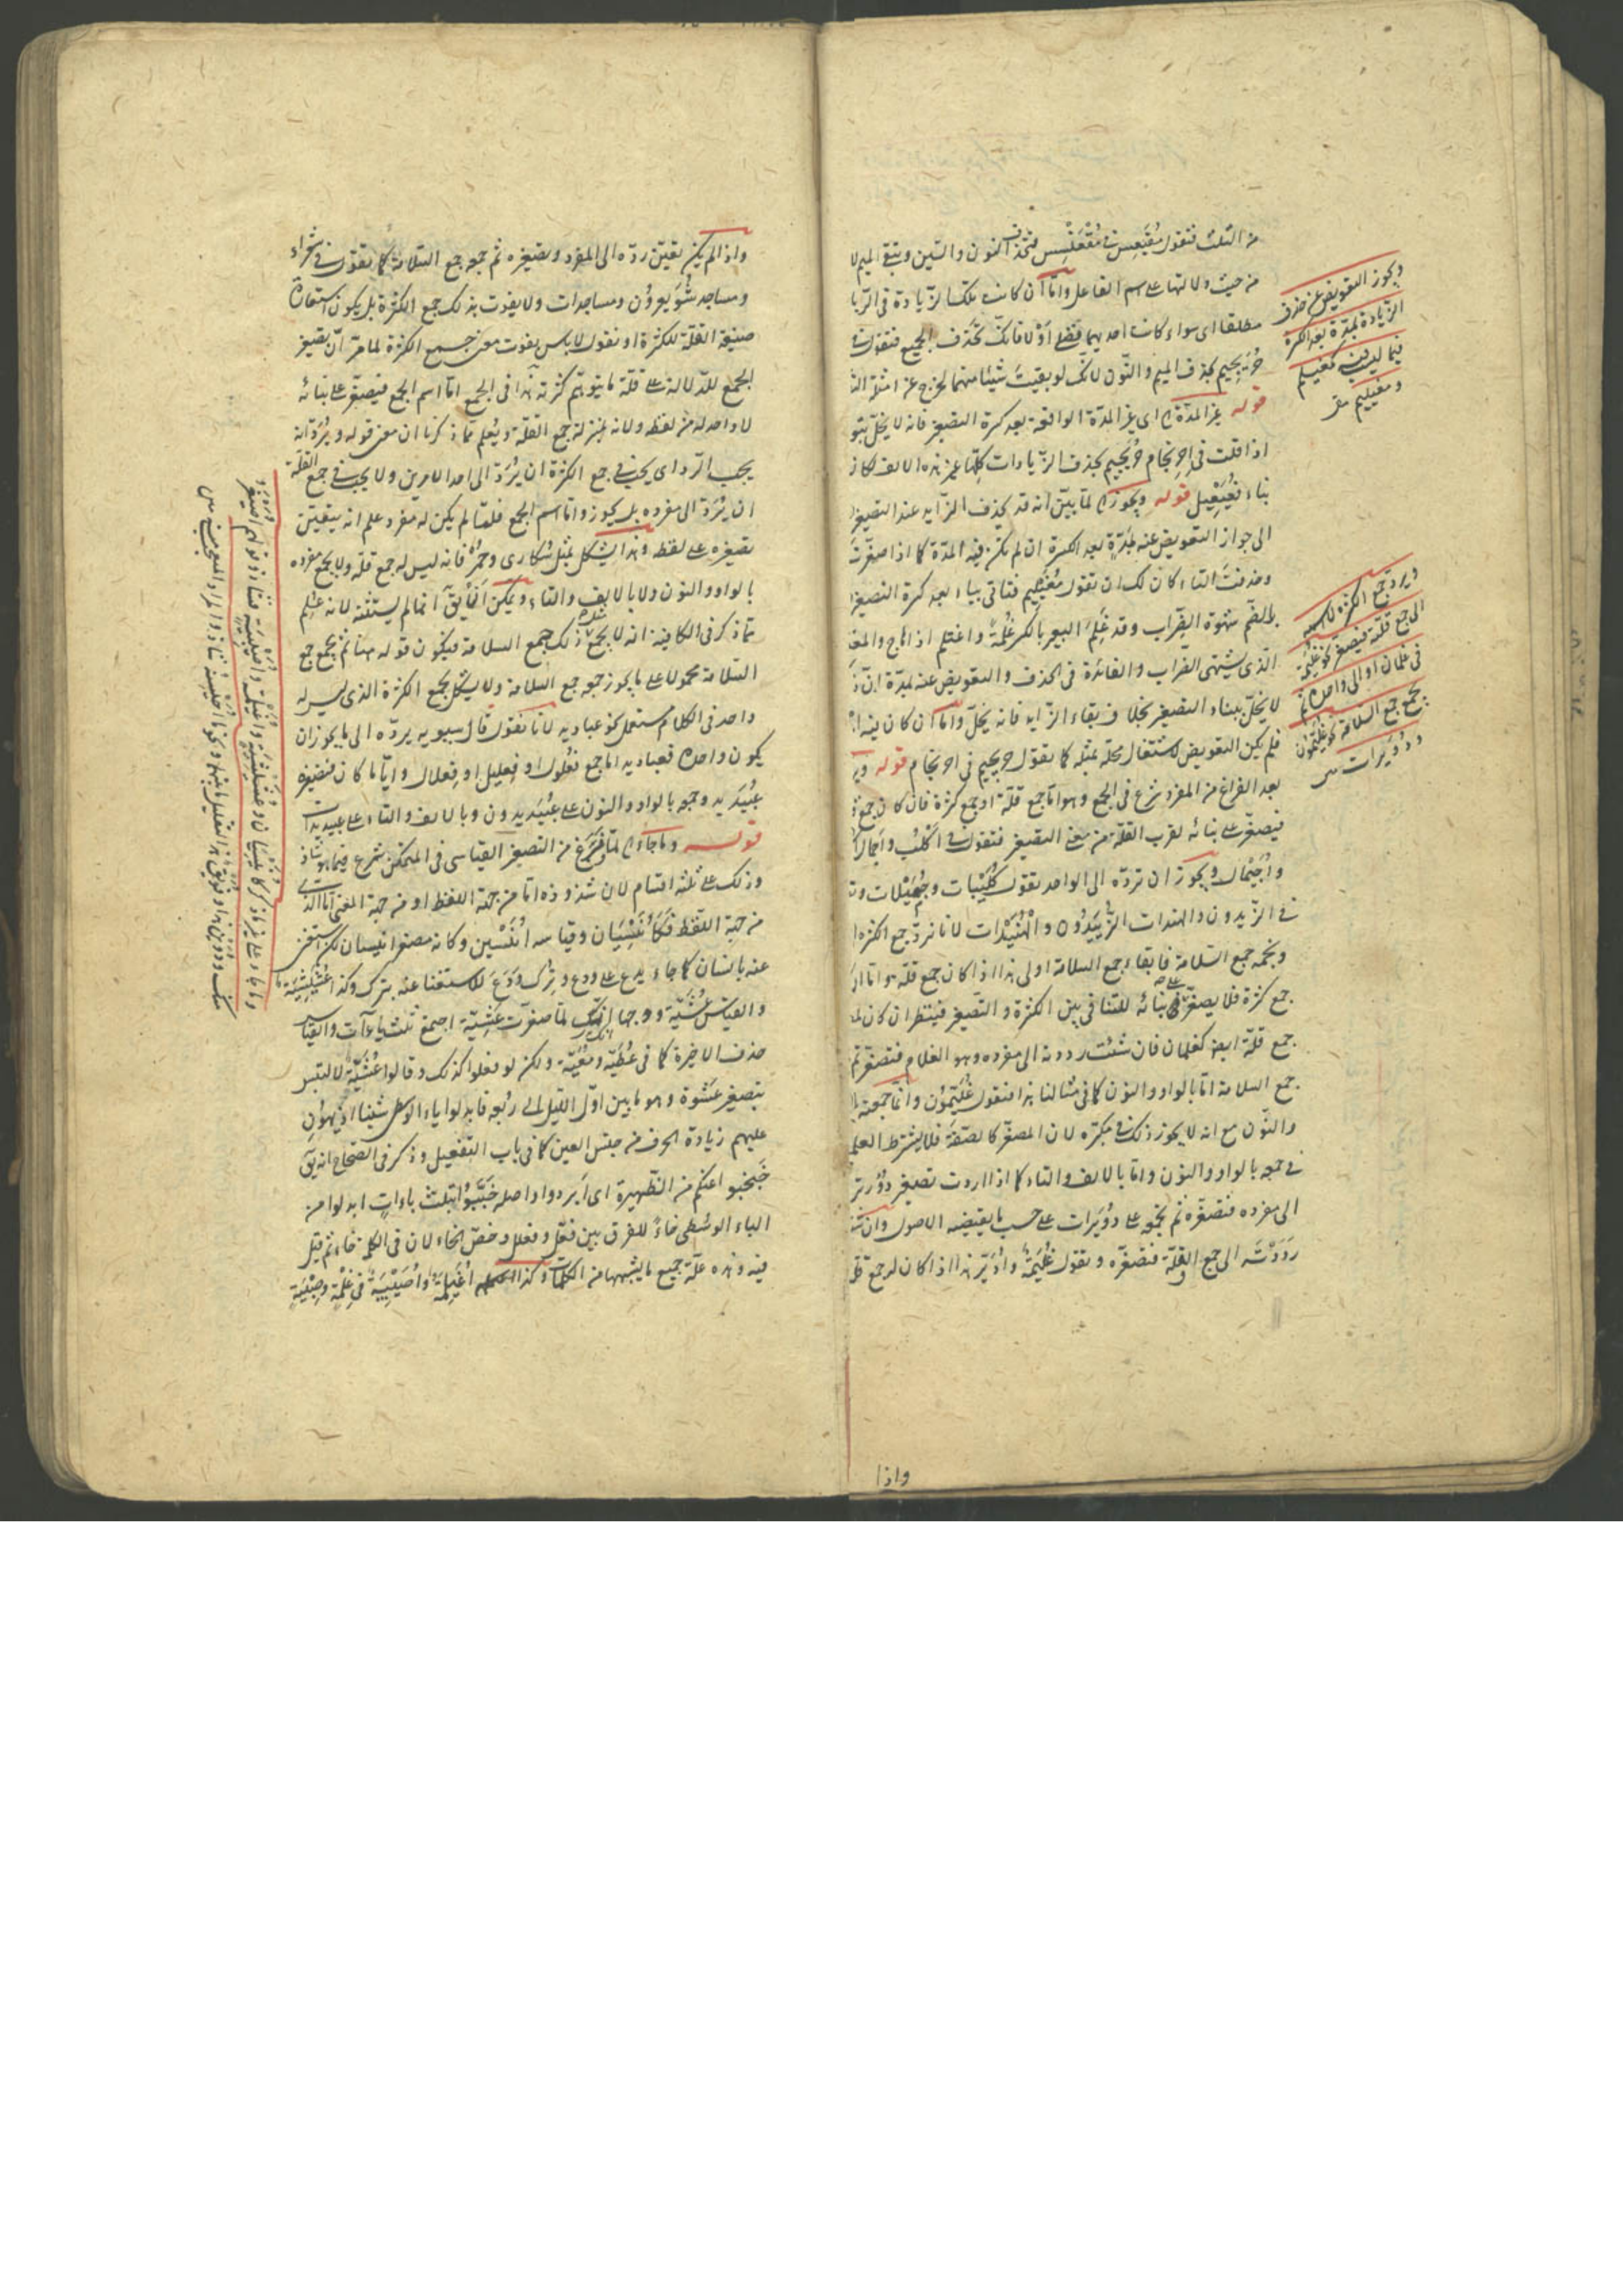 من الثلث فتقول مُقَيْعِس في مُقْعَنْسِس فتحذف النون والسّين وتبقى الميم لا
من حيث دلالتها على اسم الفاعل وامّا ان كانت تلك الزّيادة في الرّبا
مطلقا اى سواء كانت احديهما فضلى أوْ لا فانّك تحذف الجميع فتقول في
حُرَيْجِيم بحذف الميم والنّون لانّك لو بقيتَ شيئا منهما لخرج عن امثلة الت
قوله غير المدّة اى غير المدّة الواقعة بعد كسرة التصغير فانه لا يخلّ بتو
اذا قلت فى احرنجام حُرَيْجِيم بحذف الزّيادات كلّها غير هذه الالف لكان
بناء فُعَيْعِيل قوله ويجوز لمّا بيّن انه قد يحذف الزّايد عند التصغير
الى جواز التعويض عنه بمَدّةٍ بعد الكسرة ان لم تكن فيه المدّة كما اذا صغّرت
وحذفتَ التاء كان لك ان تقول مُغَيْلِيم فتاتى بياء بعد كسرة التصغير
بالضّم شهوة الضّراب وقد غَلِمَ البعير بالكسر غُلْمَةً واغتلم اذا هاج والمغ
الّذى يشتهى الضّراب والفائدة فى الحذف والتعويض عنه بمدّة انّ ذ
لا يخلّ ببناء التصغير بخلاف بقاء الزّايد فانه يخلّ وامّا ان كان فيه ا
فلم يكن التعويض لاشتغال محلّه بمثله كما تقول حريجيم فى احرنجام قوله وير
بعد الفراغ من المفرد شرع فى الجمع وهو امّا جمع قلّة او جمع كثرة فان كان جمع ق
فيصغّر على بنائه لقرب القلّة من معنى التصغير فتقول فى اَكْلُب واَجمال ا
واُجَيْمال ويجوز ان تردّه الى الواحد تقول كُلَيْبات وجُمَيْلات وت
فى الزّيدون والهندات الزُّيَيْدُون والهُنَيْدات لانا نردّ جمع الكثرة ا
ونجمعه جمع السّلامة فابقاء جمع السلامة اولى هذا اذا كان جمع قلّة وامّا اذ
جمع كثرة فلا يصغّر على بنائه للتنافى بين الكثرة والتّصغير فينظر ان كان له
جمع قلّة ايضا كغلمان فان شئت رددته الى مفرده وهو الغلام فتصغّره ثم
جمع السلامة امّا بالواو والنون كما فى مثالنا هذا فتقول غُلَيِّمُون وانّما جمعته با
والنّون مع انه لا يجوز ذلك فى مكبّره لان المصغّر كالصّفة فلا يشترط العلم
فى جمعه بالواو والنون وامّا بالالف والتاء كما اذا اردت تصغير دُوْر تر
الى مفرده فتصغّره ثم تجمعه على دُوَيْرات على حسب ما يقتضيه الاصول وان ش
رَدَدْتَه الى جمع القلّة فتصغّره وتقول غُلَيْمَة واُدَيْئِر هذا اذا كان له جمع قل
ويجوز التعويض عن حذف
الزيادة بمدّة بعد الكسرة
فيما ليست فيه كمغيليم
ومغيليم
ويرد جمع الكثرة لا اسمه
الى جمع قلّته فيصغر نحو غليمة
فى غلمان او الى واحده ثم
يجمع جمع السلامة نحو غليّمون
ودويرات
واذا
واذا لم يكن تعيّن ردّه الى المفرد وتصغيره ثم جمعه جمع السّلامة كما تقول فى شعراء
ومساجد شُوَيْعِرُوْن ومسيجدات ولا يفوت بذلك جمع الكثرة بل يكون استعارة
صيغة القلّة للكثرة او نقول لا باس بفوت معنى جمع الكثرة لما مرّ انّ تصغير
الجمع للدّلالة على قلّة ما يتوهّم كثرته هذا فى الجمع امّا اسم الجمع فيصغّر على بنائه
لا واحد له من لفظه ولانه بمنزلة جمع القلّة ويُعلم ممّا ذكرنا ان معنى قوله ويُرَدّ انه
يجب الرّد اى يجب فى جمع الكثرة ان يُرَدّ الى احد الامرين ولا يجب فى جمع القلّة
ان يُرَدّ الى مفرده بل يجوز وامّا اسم الجمع فلمّا لم يكن له مفرد علم انه يتعيّن
تصغيره على لفظه وهذا يشكل بمثل سُكارى وحُمْر فانه ليس له جمع قلّة ولا يجمع مفرده
بالواو والنون ولا بالالف والتاء ويمكن ان يقٓ انما لم يستثنه لانه عُلِم
ممّا ذكر فى الكافية انه لا يجمع ذلك جمع السلامة فيكون قوله هنا ثم يجمع جمع
السّلامة محمولا على ما يجوز جمعه جمع السّلامة ولا يشكل بجمع الكثرة الذى ليس له
واحد فى الكلام مستعمل نحو عباديد لانا نقول قال سيبويه يردّه الى ما يجوز ان
يكون واحده فعباديد امّا جمع فُعْلول او فِعليل او فِعلال وايّا ما كان فتصغيره
عُبَيْدِيد وجمعه بالواو والنون على عُبَيْدِيدون وبالالف والتاء على عبيديدات
قوله وما جاء لمّا فَرَغ من التصغير القياسى فى المتمكن شرع فيما هو شاذ
وذلك على ثلثة اقسام لان شذوذه امّا من جهة اللفظ او من جهة المعنى امّا الذى
من جهة اللّفظ فكاُنَيْسِيَان وقياسه اُنَيْسِين وكانه مصغر انيسان لكن استغنى
عنه بانسان كما جاء يدع على ودع وتُرِك وَدَعَ للاستغناء عنه بترك وكذا عُشَيْشِيَة
والقياس عُشَيَّة ووجهها انّك لمّا صغّرت عَشِيّة اجتمع ثلث ياءات والقياس
حذف الاخيرة كما فى عُطَيَّة ومُعَيَّة ولكن لو فعلوا كذلك وقالوا عُشَيَّة لالتبس
بتصغير عَشْوة وهو ما بين اوّل الليل الى ربُعه فابدلوا ياء الوسطى شينا اذ يهون
عليهم زيادة الحرف من جنس العين كما فى باب التّفعيل وذكر فى الصّحاح انه يقٓ
خَبْخِبوا عنكم من الظّهيرة اى اَبردوا واصله خَبِّبُوا بثلث باءات ابدلوا من
الباء الوسطى خاءً للفرق بين فعّل وفعلل وخصّ الخاء لان فى الكلمة خاء ثم قيل
فيه وهذه علّة جميع ما يشبهها من الكلمات وكذا اُغَيْلِمَة واُصَيْبِيَة فى غِلْمَة وصِبْيَة
وما جاء على غير ما ذكر كانيسيان وعشيشية واغيلمة واصيبية شاذ وقولهم اصيغر
منك ودوين هذا وفويق هذا لتقليل ما بينهما ونحو ما احيسنه شاذ والمراد المتعجب منه